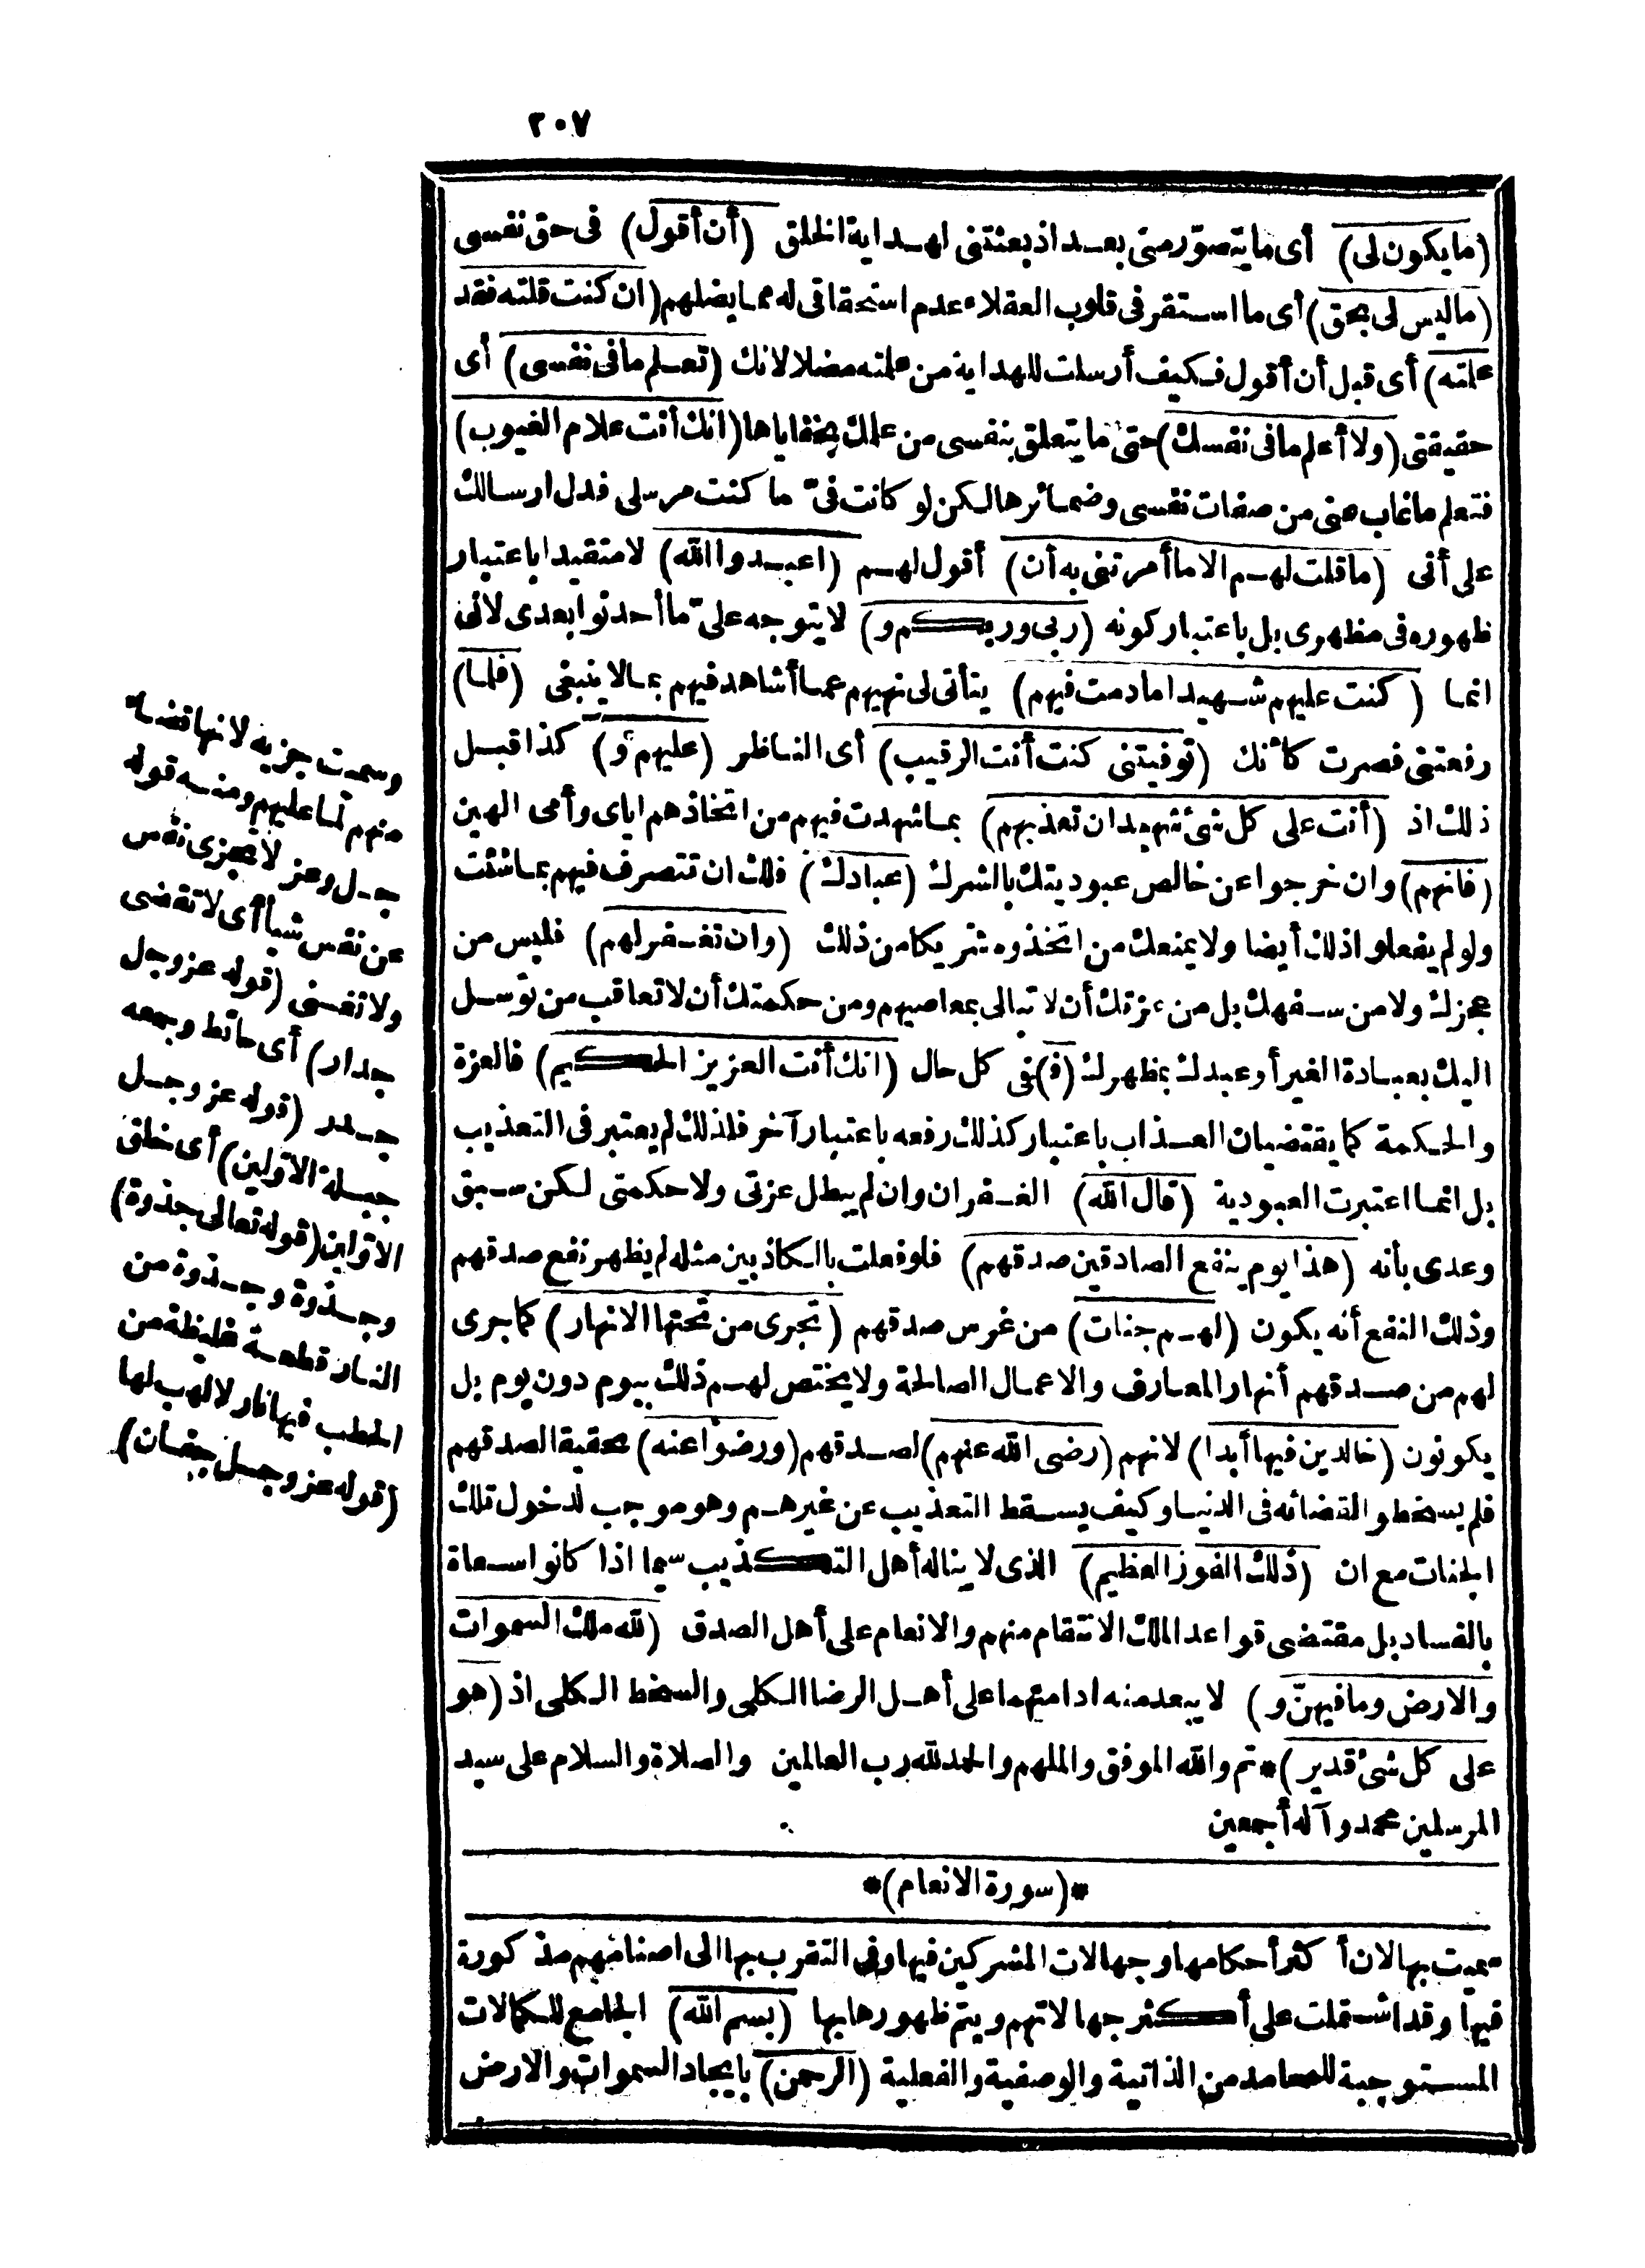 ٢٠٧
(ما يكون لى) أى ما يتصوّر منى بعد اذ بعثتنى لهداية الخلق (أن أقول) فى حق نفسى
(ما ليس لى بحق) أى ما استقر فى قلوب العقلاء عدم استحقاقى له مما يضلهم (ان كنت قلته فقد
علمته) أى قبل أن أقول فكيف أرسلت للهداية من علمته مضلا لانك (تعلم ما فى نفسى) أى
حقيقتى (ولا أعلم ما فى نفسك) حتى ما يتعلق بنفسى من علمك بخفاياها (انك أنت علام الغيوب)
فتعلم ما غاب عنى من صفات نفسى وضمائرها لكن لو كانت فىّ ما كنت مرسلى فدل ارسالك
على أنى (ما قلت لهم الا ما أمرتنى به أن) أقول لهم (اعبدوا الله) لا متقيدا باعتبار
ظهوره فى مظهرى بل باعتبار كونه (ربى وربكم و) لا يتوجه علىّ ما أحدثوا بعدى لأنى
انما (كنت عليهم شهيدا ما دمت فيهم) يتأتى لى نهيهم عما أشاهد فيهم مما لا ينبغى (فلما)
رفعتنى فصرت كأنك (توفيتنى كنت أنت الرقيب) أى الناظر (عليهم و) كذا قبل
ذلك اذ (أنت على كل شئ شهيد ان تعذبهم) بما شهدت فيهم من اتخاذهم اياى وأمى الهين
(فانهم) وان خرجوا عن خالص عبوديتك بالشرك (عبادك) فلك ان تتصرف فيهم بما شئت
ولو لم يفعلوا ذلك أيضا ولا يمنعك من اتخذوه شريكا من ذلك (وان تغفر لهم) فليس من
عجزك ولا من سفهك بل من عزتك أن لا تبالى بمعاصيهم ومن حكمتك أن لا تعاقب من توسل
اليك بعبادة الغير أو عبدك بمظهرك (ف) فى كل حال (انك أنت العزيز الحكيم) فالعزة
والحكمة كما يقتضيان العذاب باعتبار كذلك رفعه باعتبار آخر فلذلك لم يعتبر فى التعذيب
بل انما اعتبرت العبودية (قال الله) الغفران وان لم يبطل عزتى ولا حكمتى لكن سبق
وعدى بأنه (هذا يوم ينفع الصادقين صدقهم) فلو فعلت بالكاذبين مثله لم يظهر نفع صدقهم
وذلك النفع أنه يكون (لهم جنات) من غرس صدقهم (تجرى من تحتها الانهار) كما جرى
لهم من صدقهم أنهار المعارف والاعمال الصالحة ولا يختص لهم ذلك بيوم دون يوم بل
يكونون (خالدين فيها أبدا) لانهم (رضى الله عنهم) لصدقهم (ورضوا عنه) بحقيقة الصدقهم
فلم يسخطوا لقضائه فى الدنيا وكيف يسقط التعذيب عن غيرهم وهو موجب لدخول تلك
الجنات مع ان (ذلك الفوز العظيم) الذى لا يناله أهل التكذيب سيما اذا كانوا سعاة
بالفساد بل مقتضى قواعد الملك الانتقام منهم والانعام على أهل الصدق (لله ملك السموات
والارض وما فيهنّ و) لا يبعد منه ادامتهما على أهل الرضا الكلى والسخط الكلى اذ (هو
على كل شئ قدير)* تم والله الموفق والملهم والحمد لله رب العالمين والصلاة والسلام على سيد
المرسلين محمد وآله أجمعين
*(سورة الانعام)*
سميت بها لان أكثر أحكامها وجهالات المشركين فيها وفى التقرب بها الى اصنامهم مذكورة
فيها وقد اشتملت على أكثر جهالاتهم ويتم ظهورها بها (بسم الله) الجامع للكمالات
المستوجبة للمحامد من الذاتية والوصفية والفعلية (الرحمن) بايجاد السموات والارض
وسميت جزية لانها قضاء
منهم لما عليهم ومنه قوله
جل وعز لا تجزى نفس
عن نفس شيأ أى لا تقضى
ولا تغنى (قوله عز وجل
جدار) أى حائط وجمعه
جدر (قوله عز وجل
جبلة الاولين) أى خلق
الاولين (قوله تعالى جذوة)
وجذوة وجذوة من
النار قطعة غليظة من
الحطب فيها نار لا لهب لها
(قوله عز وجل جفان)